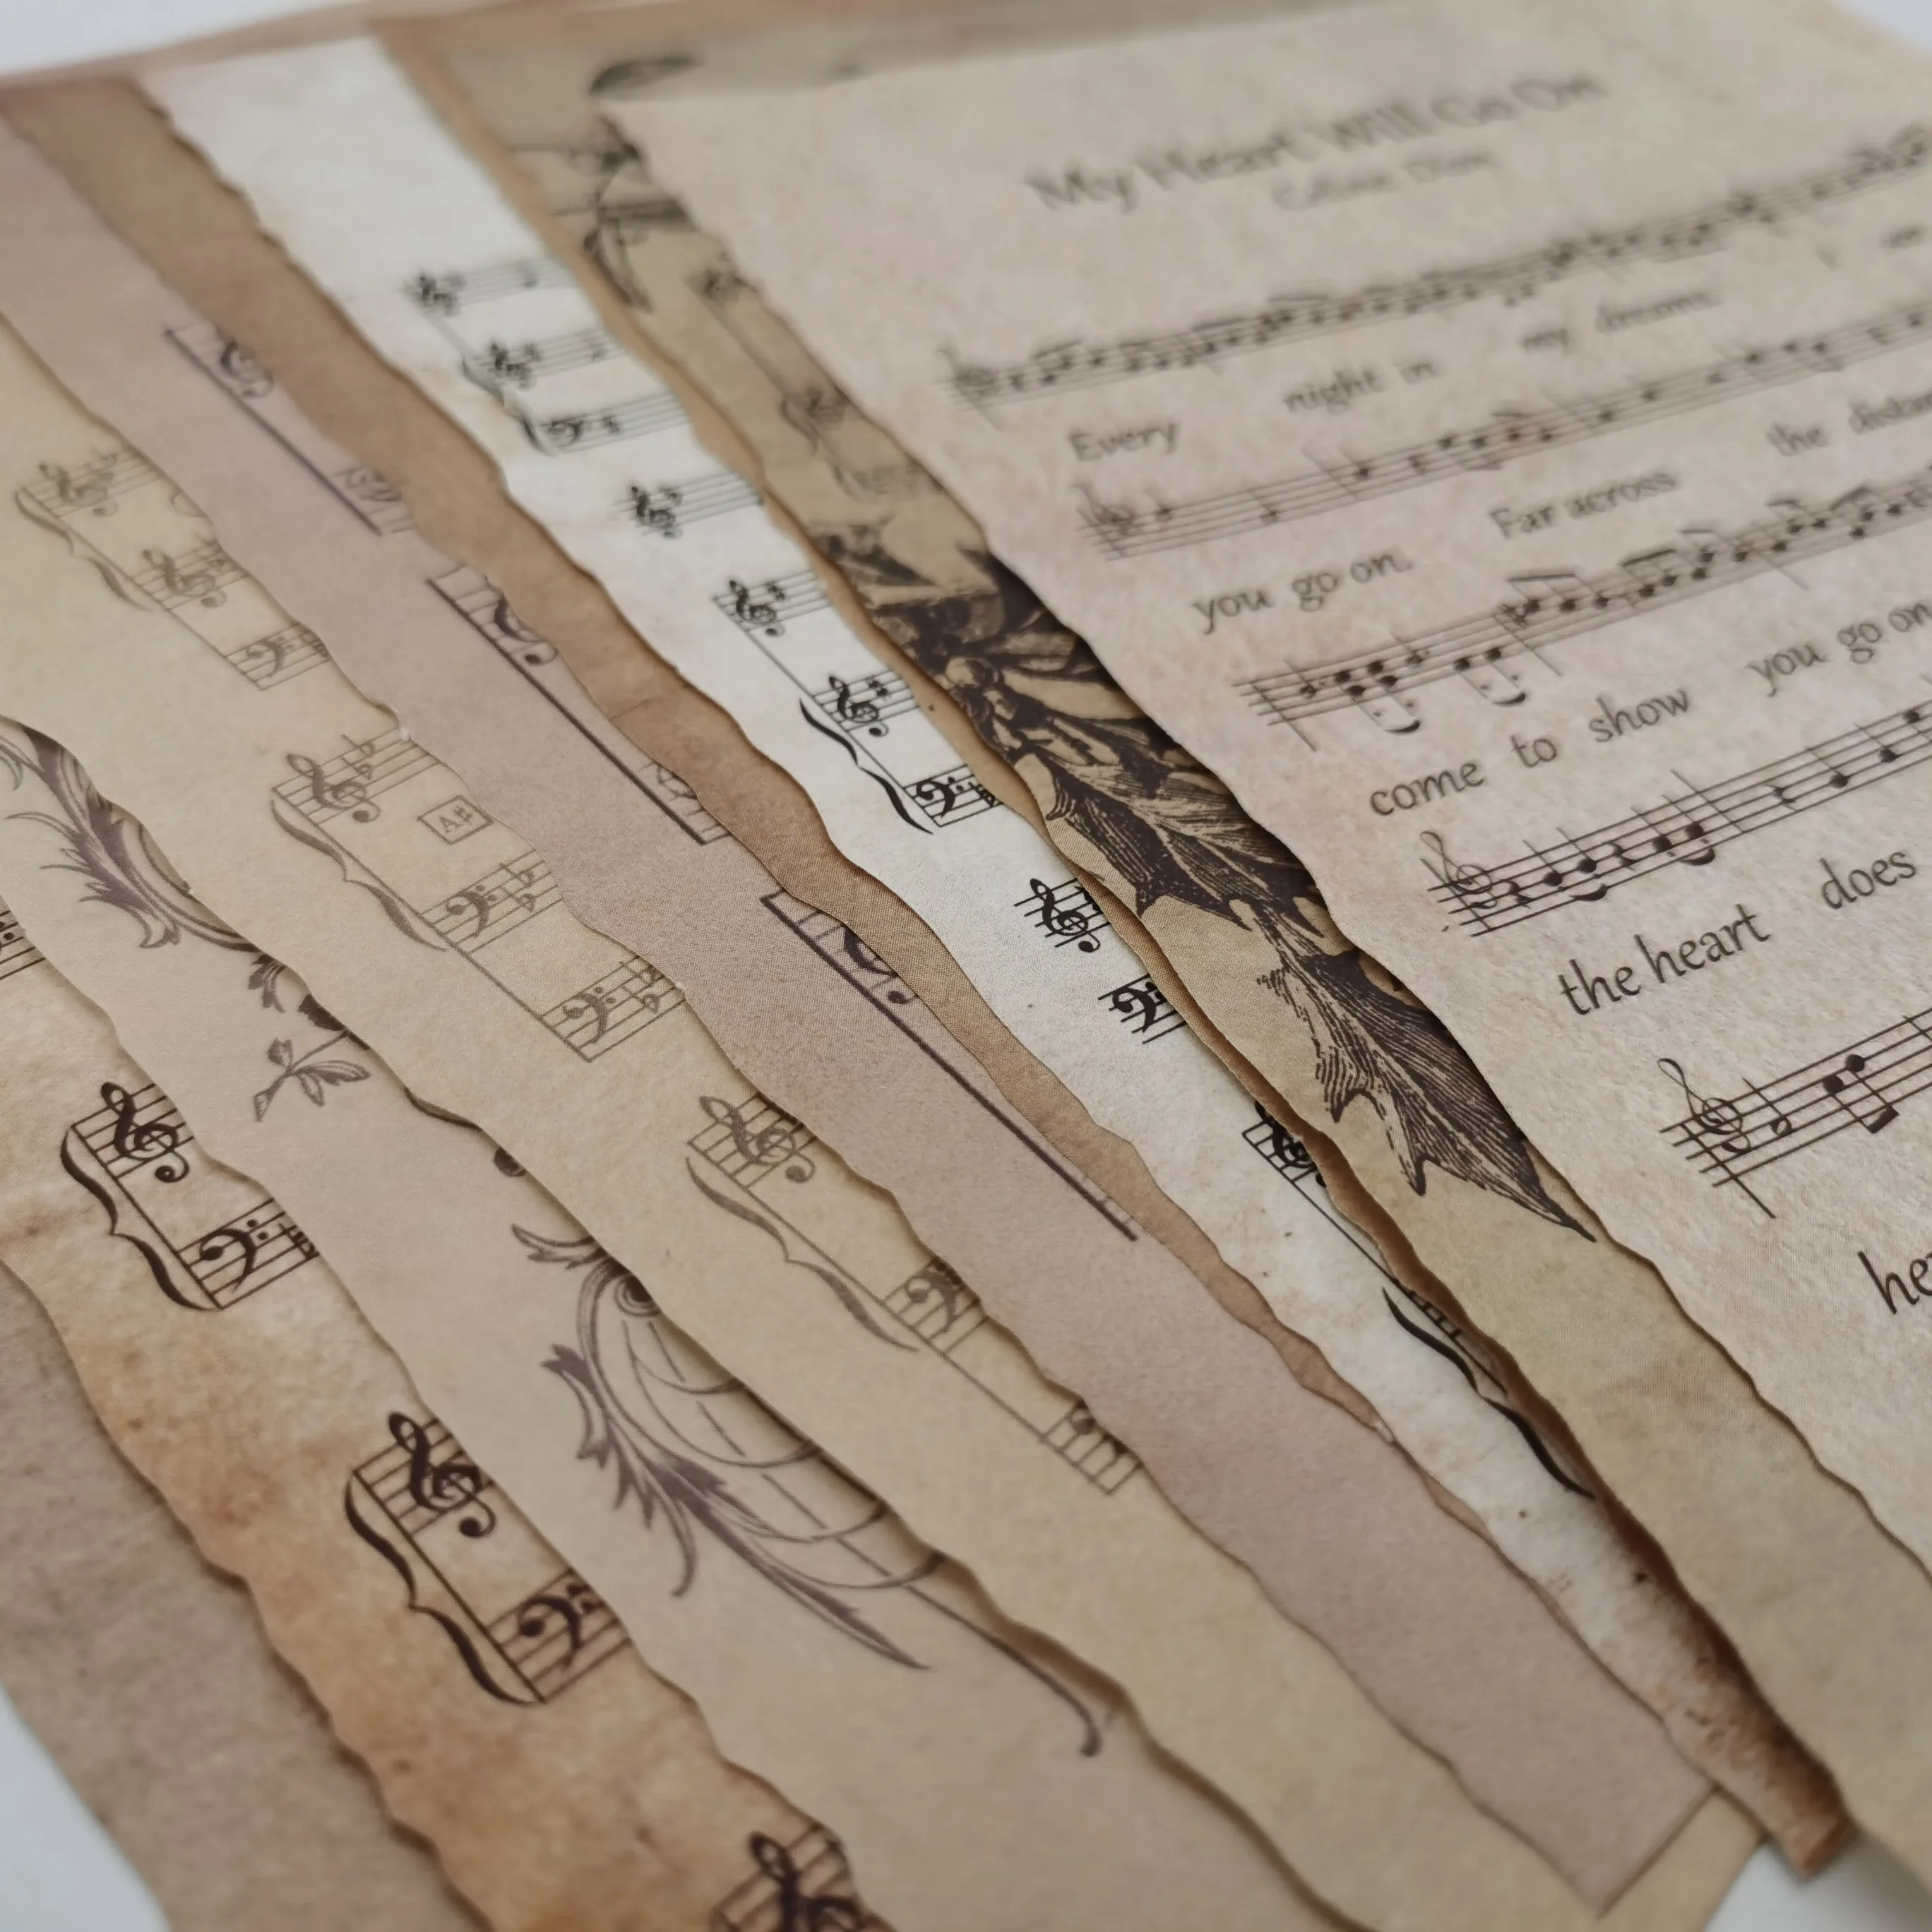 My Heart Will Go On
Celine Dion
Every night in my dreams I see
you go on. Far across the distan
come to show you go on
the heart does
he
A#